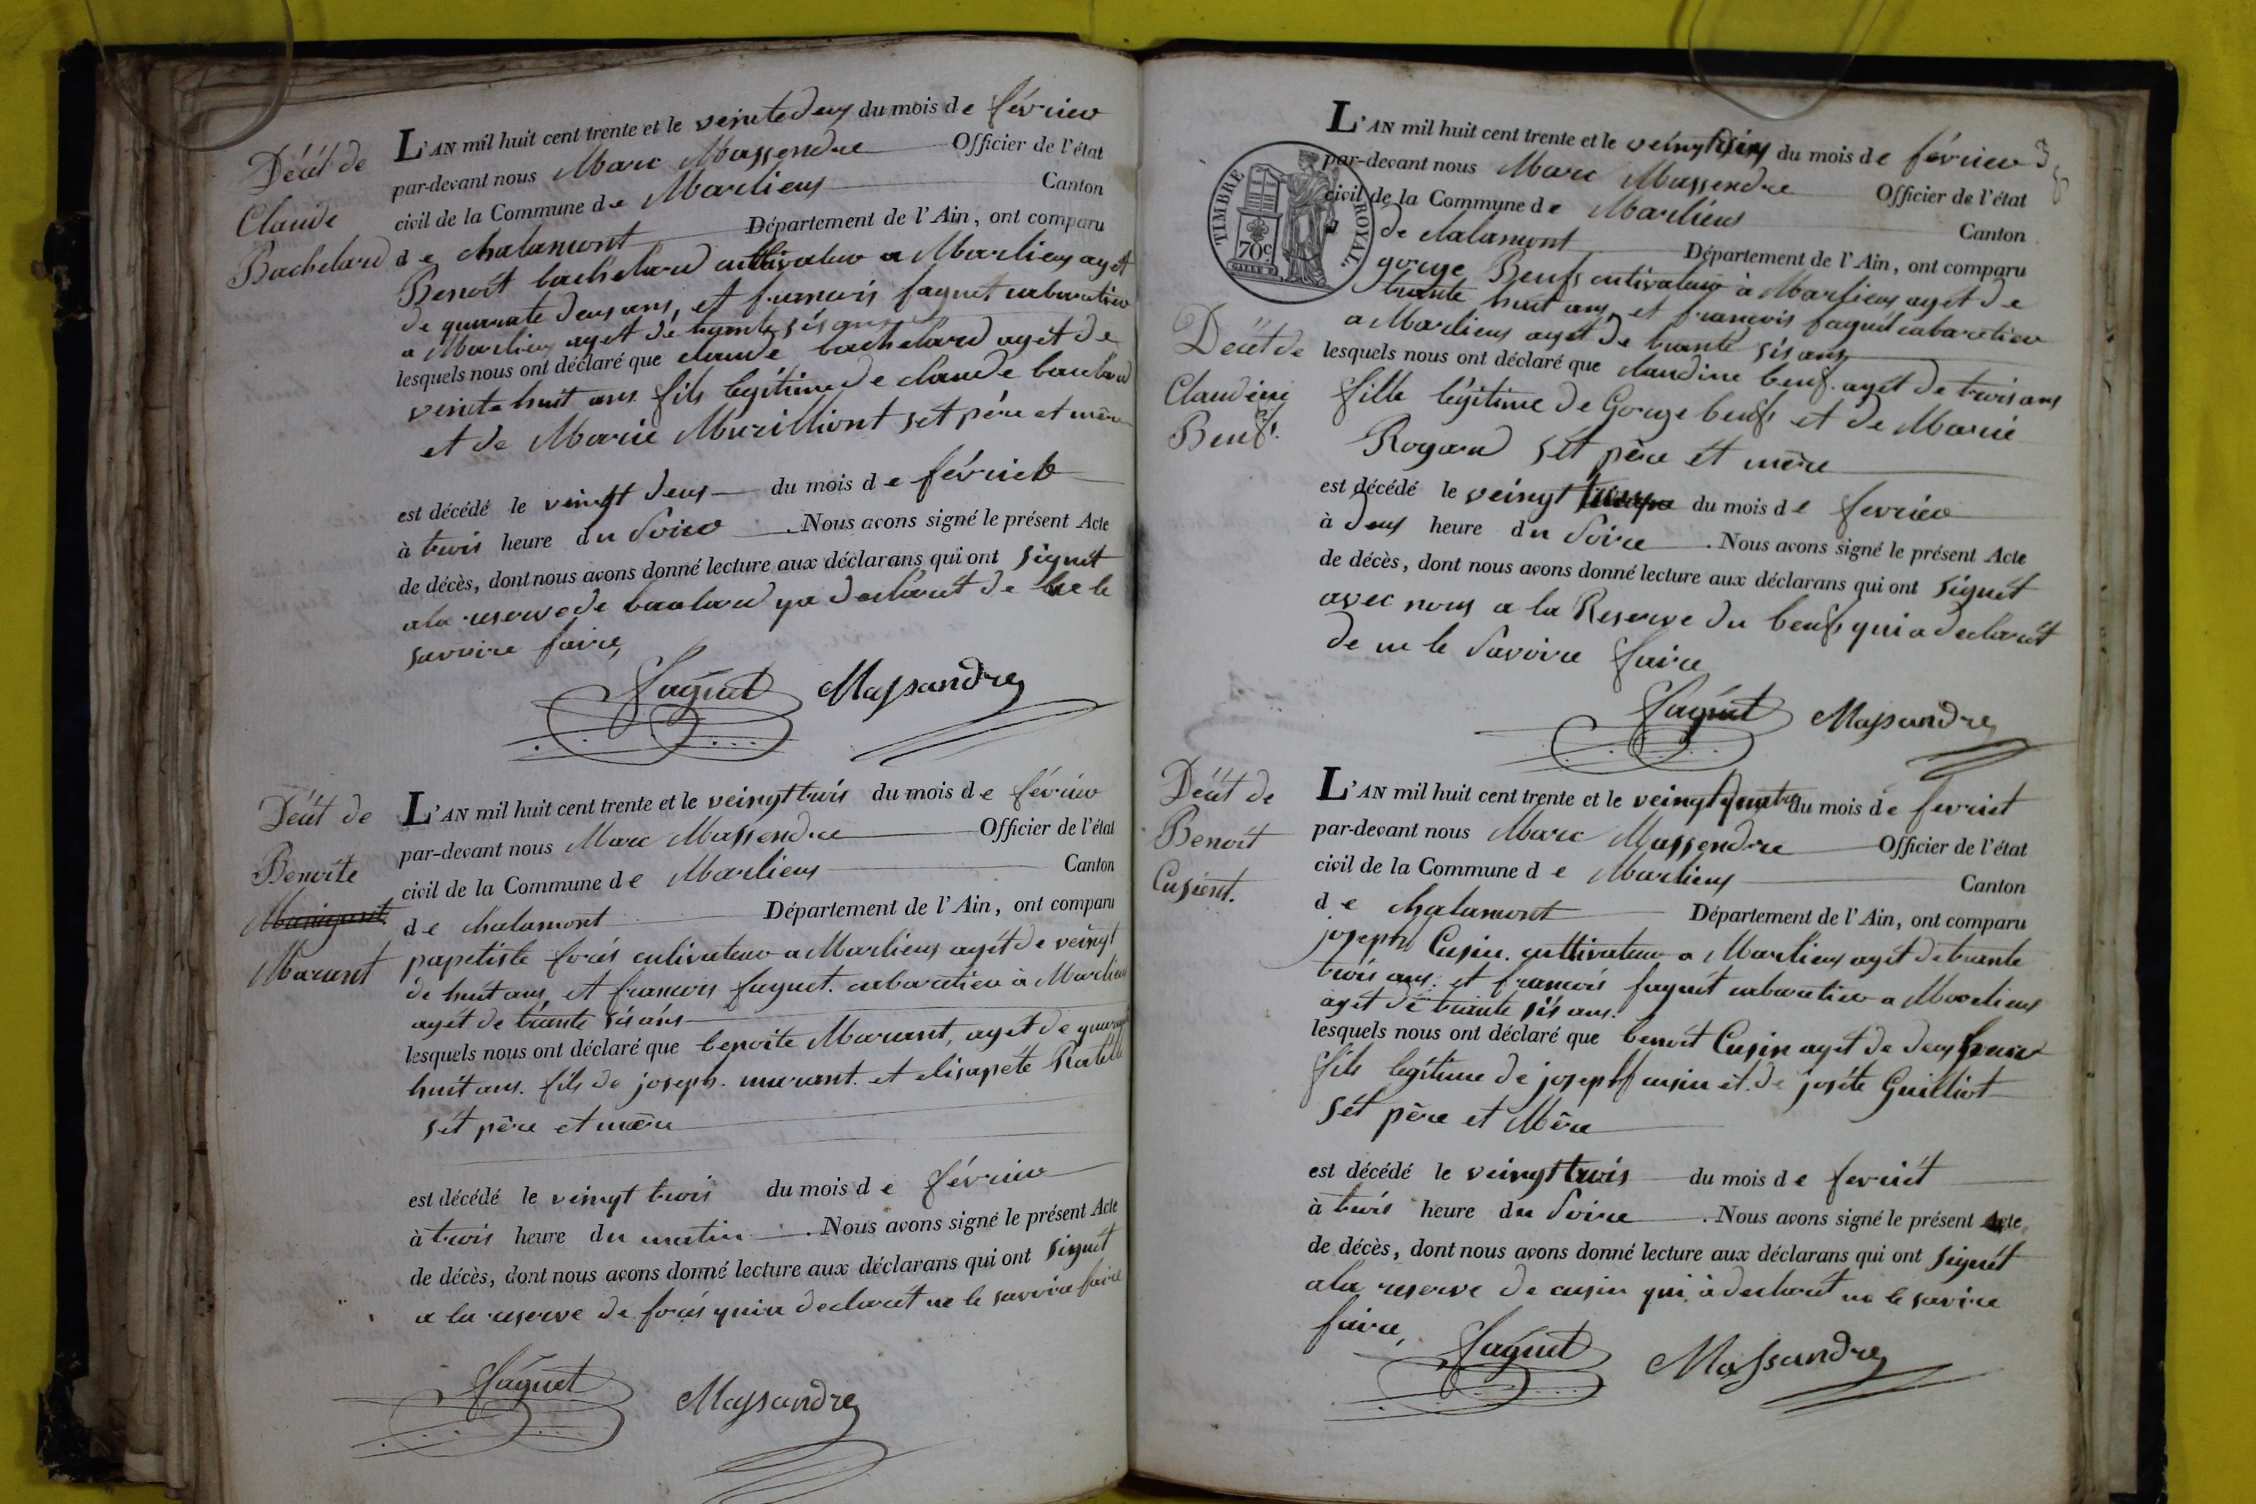 Décét de
Claude
Bachelard
L'AN mil huit cent trente et le veintedeus du mois de février
par-devant nous Marc Massendre Officier de l'état
civil de la Commune de Marlieus Canton
de chalamont Département de l'Ain, ont comparu
Benoit bachelard cultivateur a Marlieus agét
de quarate deus ans, et francois faguet cabaretier
a Marlieus agét de trante sis ans
lesquels nous ont déclaré que claude bachelard agét de
veinte huit ans fils legitime de claude
et de Marie Murilliont sét père et mère
est décédé le veingt deus du mois de février
à trois heure du Soire Nous avons signé le présent Acte
de décès, dont nous avons donné lecture aux déclarans qui ont signét
a la reserve de declarét de ne le
savoire faire,
faguet Massandre
Décét de
Benoite
Marant
L'AN mil huit cent trente et le veingt trois du mois de février
par-devant nous Marc Massendre Officier de l'état
civil de la Commune de Marlieus Canton
de chalamont Département de l'Ain, ont comparu
papetiste forés culivateur a Marlieus agét de veingt
de huit ans, et francois faguet cabaretier à Marlieus
agét de trante sis ans
lesquels nous ont déclaré que benoite Marant, agét de
huit ans. fils de joseph. marant. et elisapéte
sét père et mère
est décédé le veingt trois du mois de février
à trois heure du matin . Nous avons signé le présent Acte
de décès, dont nous avons donné lecture aux déclarans qui ont signét
a la reserve de forés qui a declarét ne le savoire faire
faguet Massandre
3
TIMBRE ROYAL
70c
L'AN mil huit cent trente et le du mois de février
par-devant nous Marc Massendre Officier de l'état
civil de la Commune de Marlieus Canton
de chalamont Département de l'Ain, ont comparu
gorge Beufs cutivateur à Marlieus agét de
trante huit ans, et francois faguét cabaretier
a Marlieus agét de trante sis ans
Décét de
Claudine
Beuf.
lesquels nous ont déclaré que claudine beuf. agét de trois ans
fille légitime de Gorge beufs et de Marie
Rogard sét père et mère
est décédé le veingt du mois de fevrier
à deus heure du Soire . Nous avons signé le présent Acte
de décès, dont nous avons donné lecture aux déclarans qui ont signét
avec nous a la Reserve du beufs qui a declarét
de ne le Savoire faire
faguét Massandre
Décét de
Benoit
Cusient.
L'AN mil huit cent trente et le veingt quatre du mois de fevriét
par-devant nous Marc Massendre Officier de l'état
civil de la Commune de Marlieus Canton
de chalamont Département de l'Ain, ont comparu
joseph Cusin. cultivateur a Marlieus agét de trante
trois ans. et francois faguét cabaretier a Marlieus
agét de trante sis ans.
lesquels nous ont déclaré que benoit Cusin agét de deus
fils legitime de joseph cusin ét de joséte Guilliot
sét père et Mère
est décédé le veingt trois du mois de fevriét
à trois heure du Soire . Nous avons signé le présent Acte
de décès, dont nous avons donné lecture aux déclarans qui ont signét
a la reserve de cusin qui à declarét ne le savire
faire,
faguet Massandre